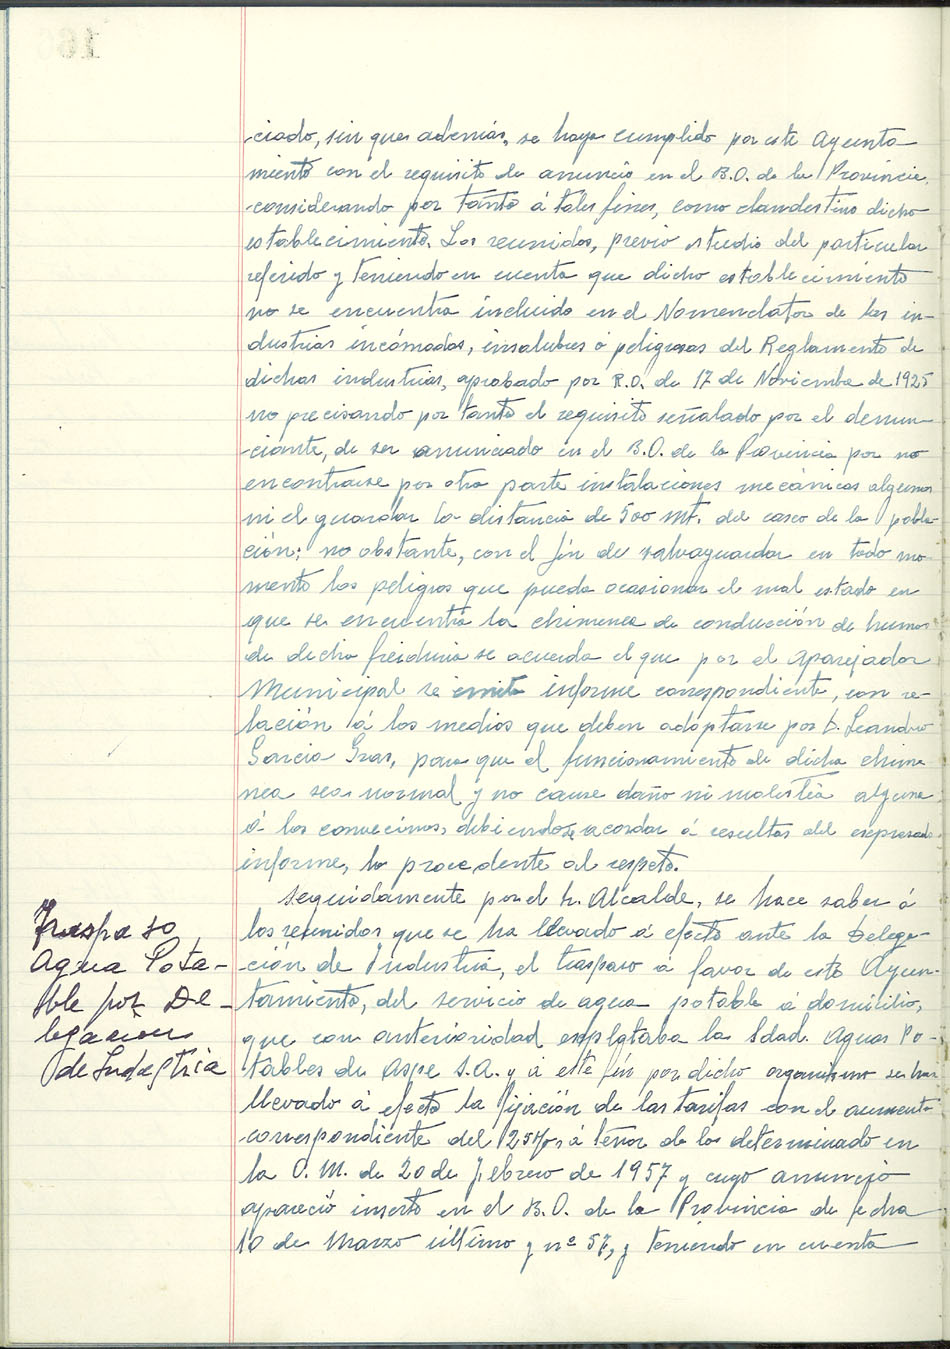 -ciado, sin que además, se haya cumplido por este Ayunta-
miento con el requisito de anuncio en el B.O. de la Provincia,
-considerando por tanto á tales fines, como clandestino dicho
establecimiento. Los reunidos, previo estudio del particular
referido y teniendo en cuenta que dicho establecimiento
no se encuentra incluido en el Nomenclator de las in-
dustrias incómodas, insalubres ó peligrosas del Reglamento de
dichas industrias, aprobado por R.O. de 17 de Noviembre de 1925
no precisando por tanto el requisito señalado por el denun-
-ciante, de ser anunciado en el B.O. de la Provincia por no
encontrarse por otra parte instalaciones mecánicas algunas
ni el guardar la distancia de 500 mt. del casco de la pobla-
ción; no obstante, con el fin de salvaguardar en todo mo-
mento los peligros que pueda ocasionar el mal estado en
que se encuentra la chimenea de conducción de humos
de dicha freiduria se acuerda el que por el Aparejador
Municipal se emita informe correspondiente, con re-
lación á los medios que deben adoptarse por D. Leandro
Garcia Gras, para que el funcionamiento de dicha chime
nea sea normal y no cause daño ni molestia alguna
á los convecinos, debiendose acordar á resultas del expresado
informe, lo procedente al respeto.
Seguidamente por el Sr. Alcalde, se hace saber á
los reunidos que se ha llevado á efecto ante la Delega-
-ción de Industria, el traspaso á favor de este Ayun-
tamiento, del servicio de agua potable á domicilio,
que con anterioridad explotaba la Sdad. Aguas Po-
tables de Aspe S.A. y á este fin por dicho organismo se han
llevado á efecto la fijación de las tarifas con el aumento
correspondiente del 25%, á tenor de lo determinado en
la O.M. de 20 de Febrero de 1957 y cuyo anuncio
apareció inserto en el B.O. de la Provincia de fecha
10 de Marzo último y nº 57, y teniendo en cuenta
Traspaso
Agua Pota-
ble por De-
legacion
de Industria
166